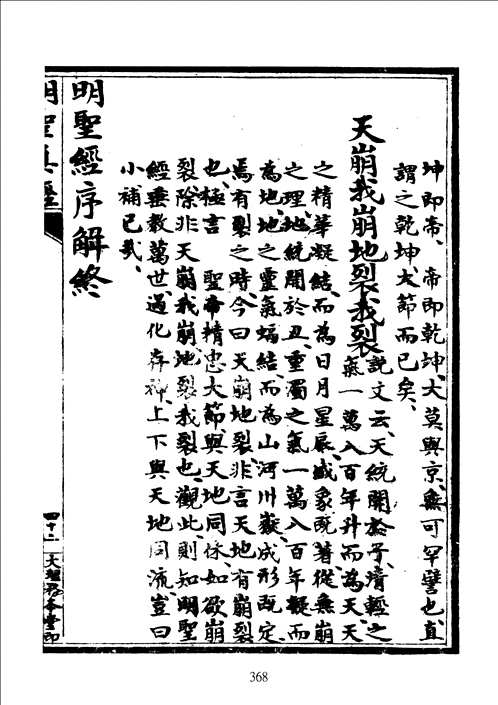 坤即帝、帝即乾坤、大莫與京、無可罕譬也、直
謂之乾坤大節而已矣、
天崩我崩地裂我裂
說文云、天統開於子、清輕之
氣一萬八百年升而為天、天
之精華凝結、而為日月星辰、盛象既著、從無崩
之理、地統闢於丑、重濁之氣一萬八百年凝而
為地、地之靈氣蟠結、而為山河川嶽、成形既定
焉有裂之時、今曰天崩地裂、非言天地有崩裂
也、極言 聖帝精忠大節、與天地同休、如欲崩
裂、除非天崩我崩、地裂我裂也、觀此、則知明聖
經垂教萬世、過化存神、上下與天地同流、豈曰
小補已哉、
明聖經序解終
明聖真經
四十二
368